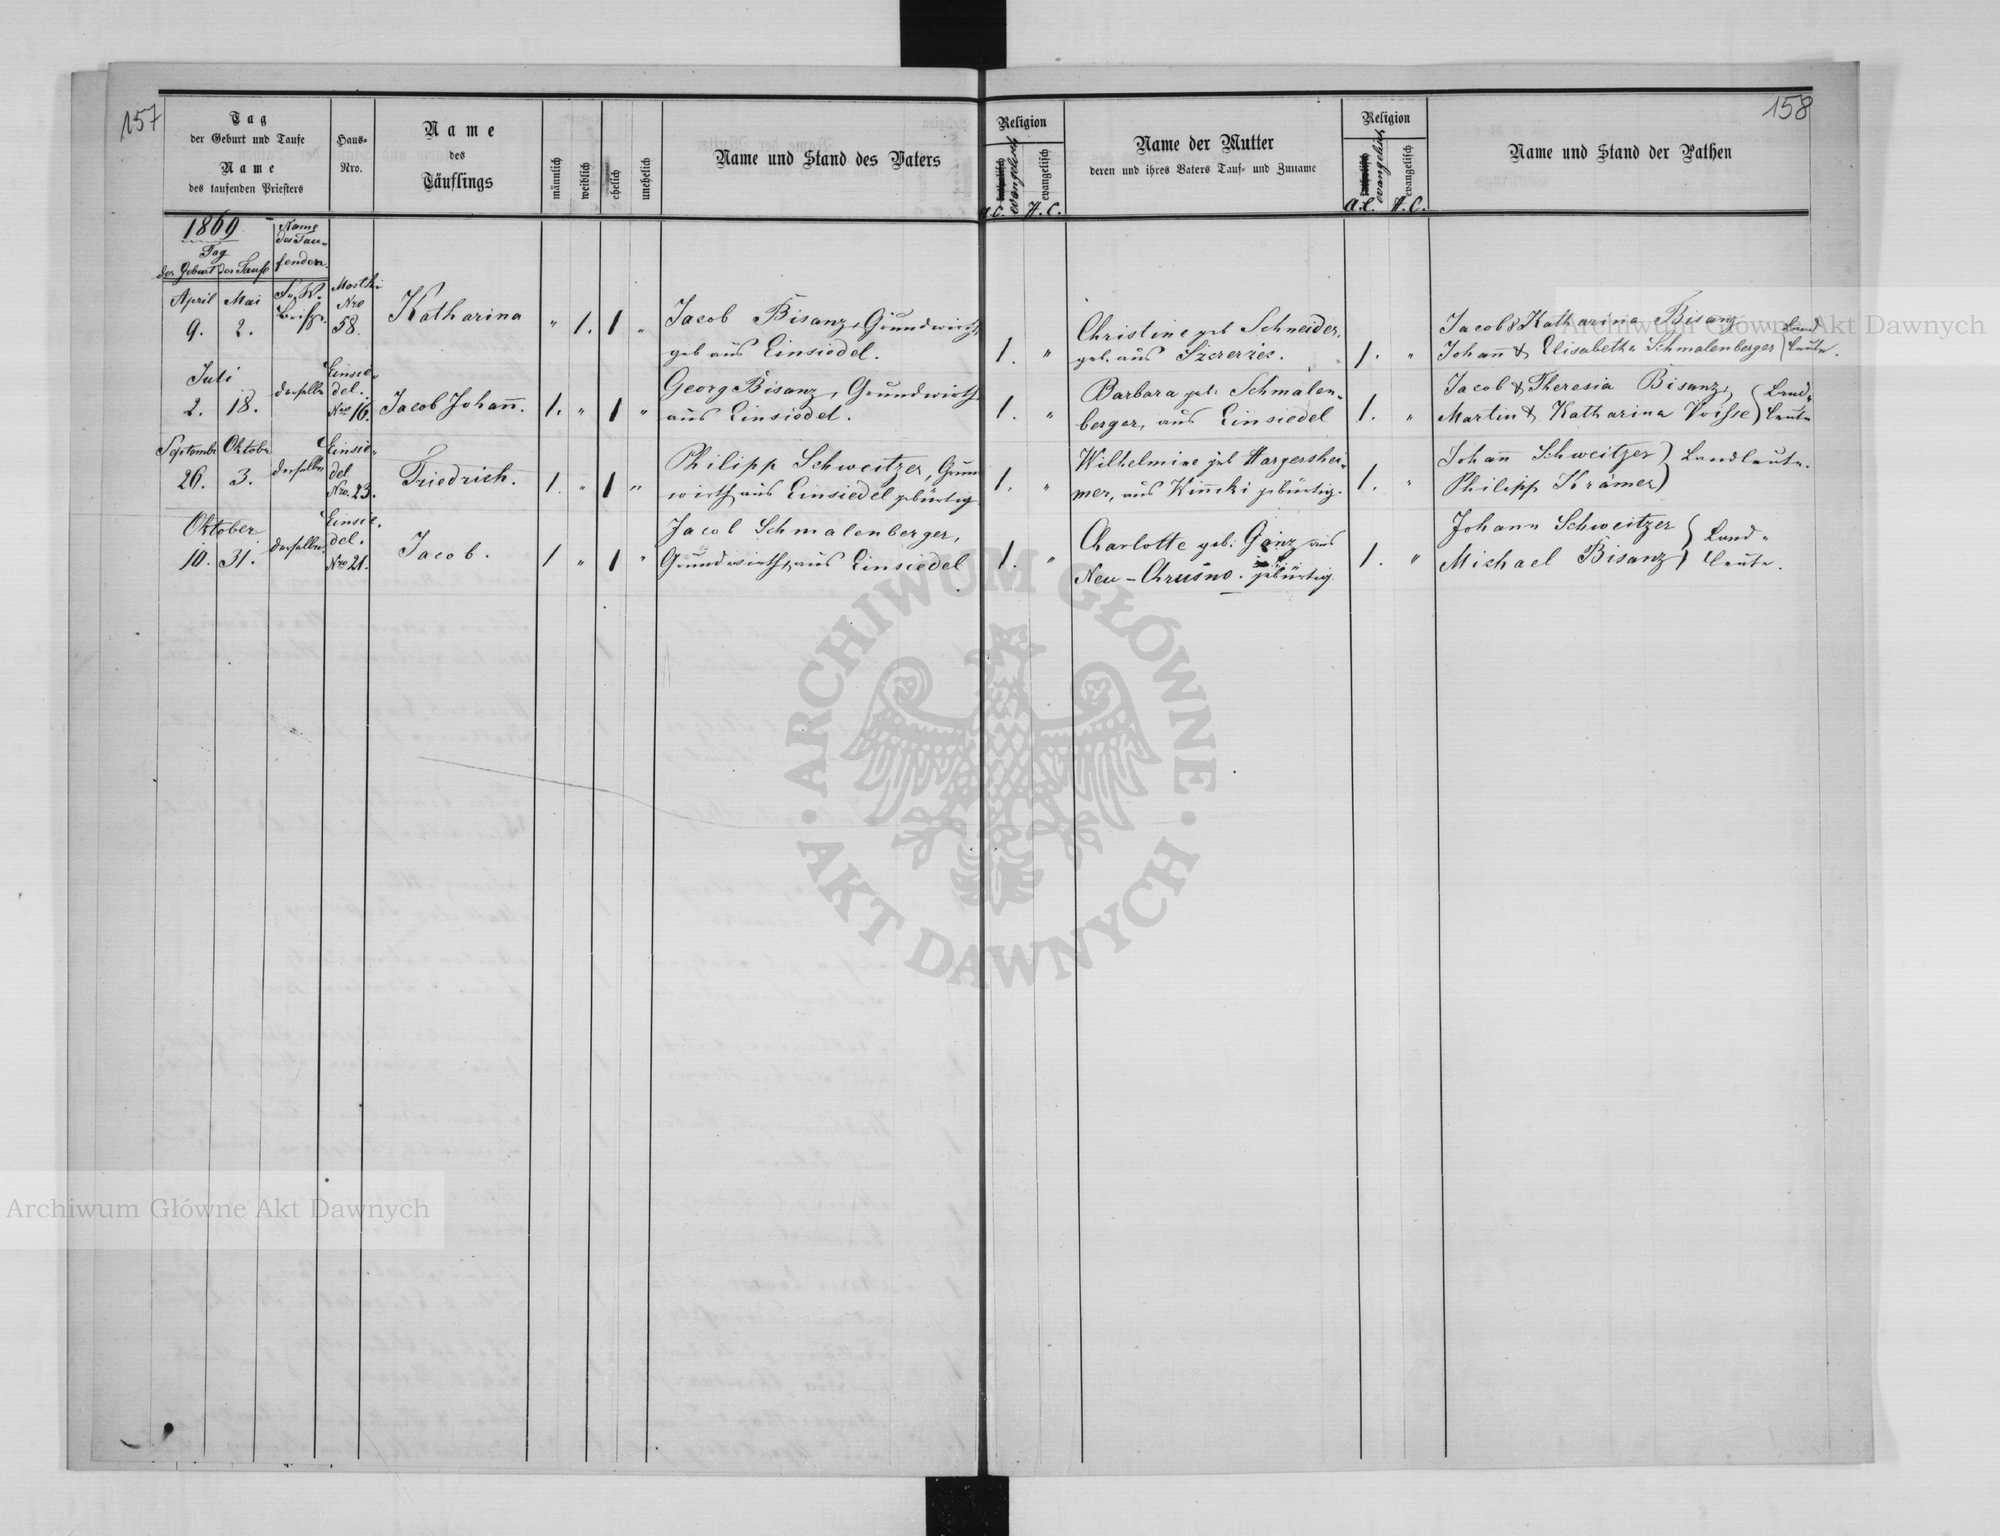 157
158
Tag
der Geburt und Taufe
Name
des taufenden Priesters
Haus-
Nro.
Name
des
Täuflings
männlich
weiblich
ehelich
unehelich
Name und Stand des Vaters
Religion
evangelisch
A. C.
evangelisch
H. C.
Name der Mutter
deren und ihres Vaters Tauf- und Zuname
Religion
evangelisch
A. C.
evangelisch
H. C.
Name und Stand der Pathen
1869
Name
des Tau-
fenden
Tag
der Geburt der Taufe
April Mai
9. 2.
Nro
58.
Katharina
" 1. 1 "
Jacob Bisanz, Grundwirth,
geb aus Einsiedel.
1. "
Christine geb Schneider,
geb. aus Szczerzec.
1. "
Jacob & Katharina Bisanz
Johann & Elisabetha Schmalenberger
Land
leute.
Juli
2. 18.
derselbe
Einsie-
del.
Nro 16.
Jacob Johann.
1. " 1 "
Georg Bisanz, Grundwirth
aus Einsiedel.
1. "
Barbara geb. Schmalen-
berger, aus Einsiedel
1. "
Jacob & Theresia Bisanz,
Martin & Katharina
Land-
leute
September Oktober
26. 3.
derselbe
Einsie-
del
Nro. 23.
Friedrich.
1. " 1 "
Philipp Schweitzer, Grund
wirth, aus Einsiedel gebürtig
1. "
Wilhelmine geb Hargershei-
mer, aus gebürtig.
1. "
Johann Schweitzer
Philipp Krämer
Landleute.
Oktober
10. 31.
derselbe
Einsie-
del.
Nro 21.
Jacob.
1 " 1 "
Jacob Schmalenberger,
Grundwirth, aus Einsiedel
1. "
Charlotte geb. Ganz aus
Neu-Chrusno. gebürtig
1. "
Johann Schweitzer
Michael Bisanz
Land-
leute.
Archiwum Główne Akt Dawnych
ARCHIWUM GŁÓWNE
AKT DAWNYCH
Archiwum Główne Akt Dawnych